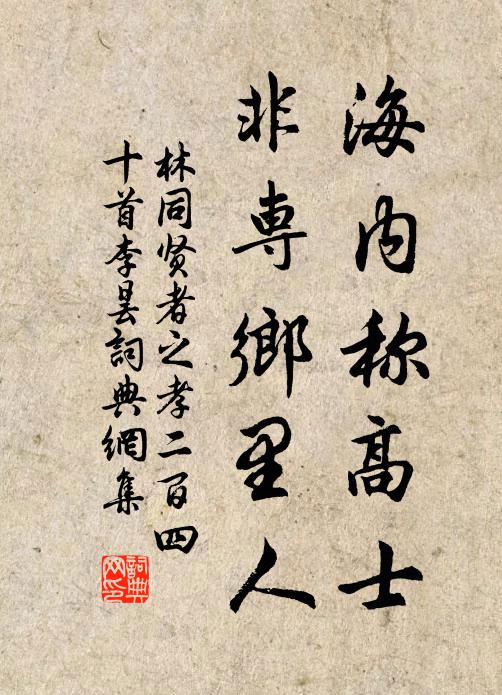 海内称高士
非専鄉里人
林同贤者之孝二百四
十首李昙詞典網集
詞典网印